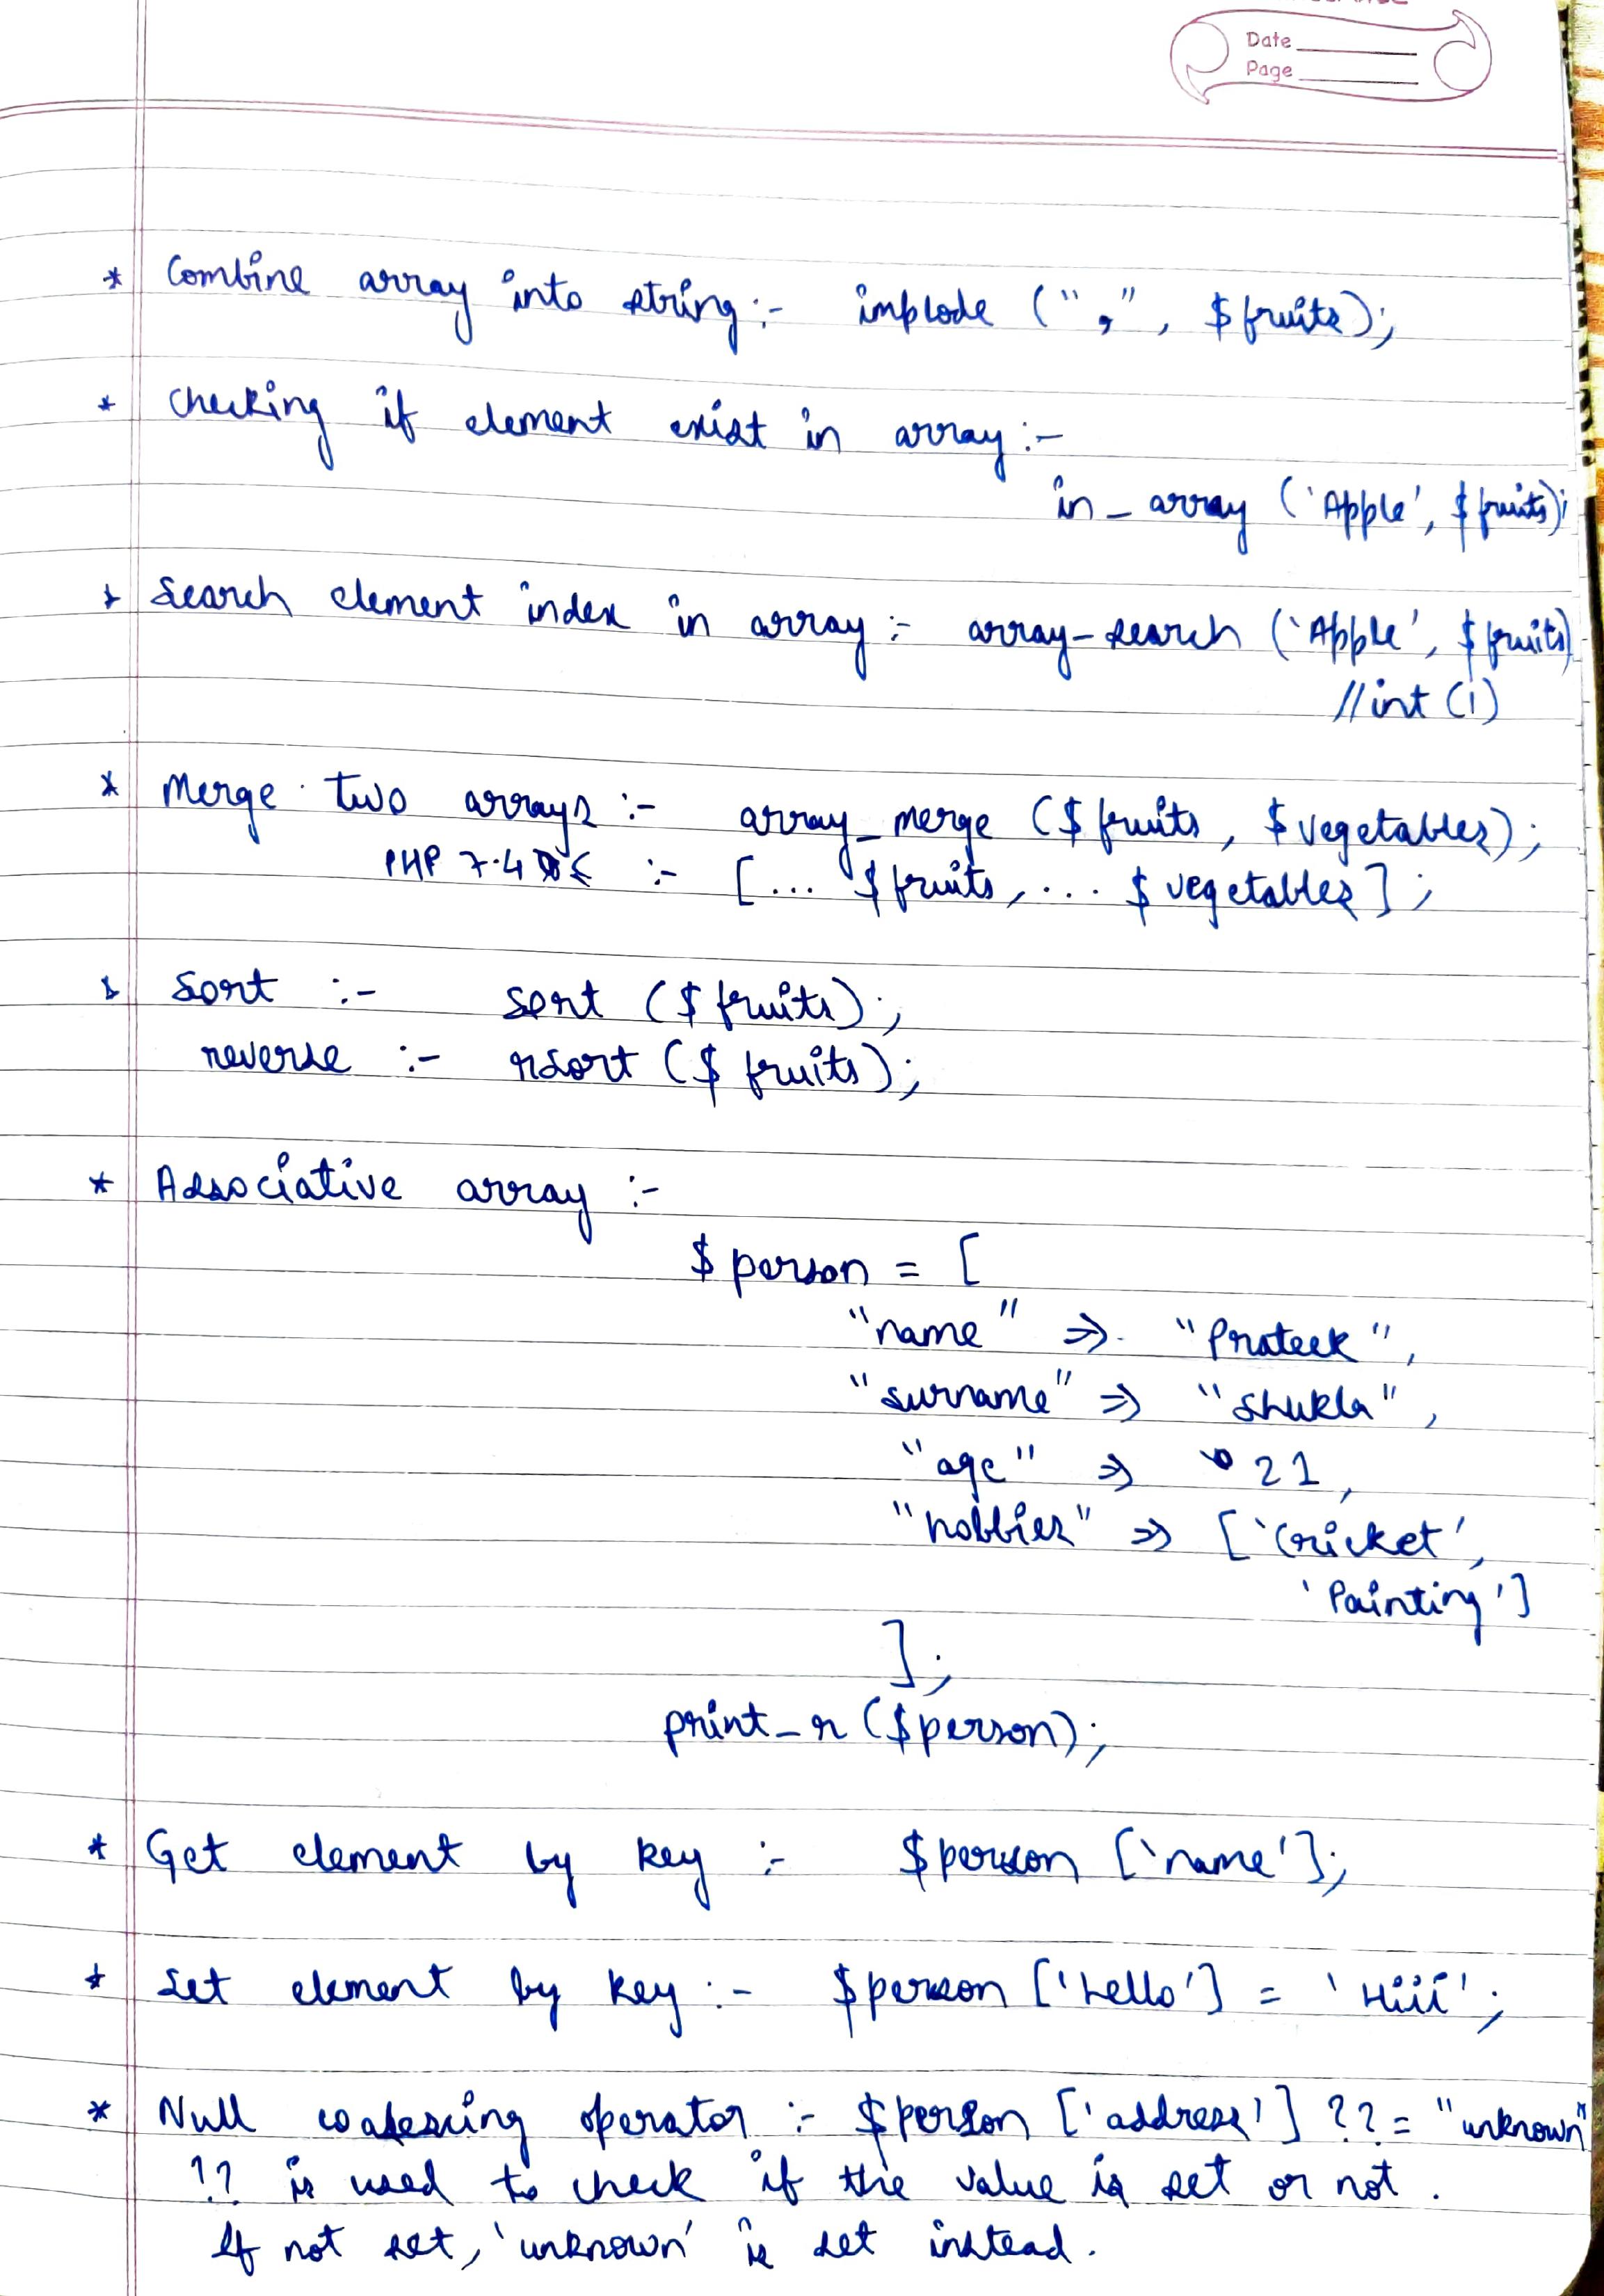 Date
Page
* Combine array into string :- implode (",", $fruits);
* Checking if element exist in array :-
in_array ('Apple', $fruits);
* Search element index in array :- array-search ('Apple', $fruits)
//int (1)
* Merge two arrays :- array_merge ($fruits, $vegetables);
PHP 7.4 :- [... $fruits, ... $vegetables];
* Sort :- sort ($fruits);
reverse :- rsort ($fruits);
* Associative array :-
$person = [
"name" => "Prateek",
"surname" => "Shukla",
"age" => 21,
"hobbies" => ['Cricket',
'Painting']
];
print_r ($person);
* Get element by key :- $person ['name'];
* Set element by key :- $person ['hello'] = 'Hiii';
* Null coalescing operator :- $person ['address'] ??= "unknown"
?? is used to check if the value is set or not.
If not set, 'unknown' is set instead.